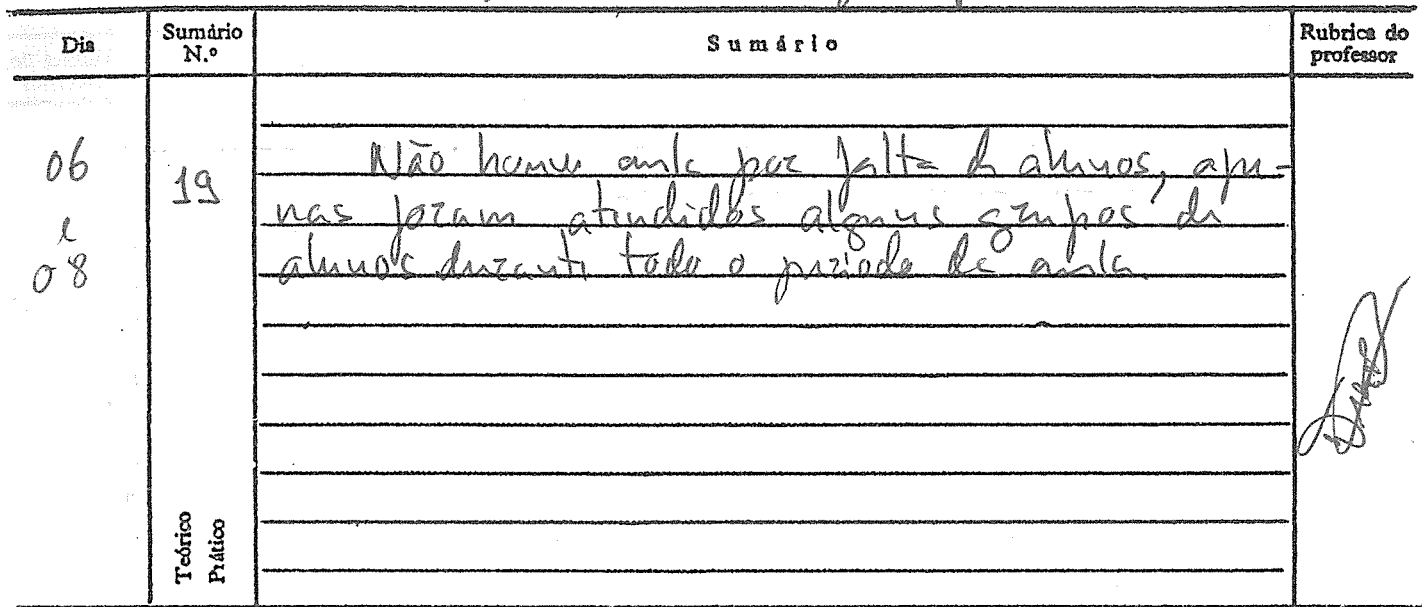 Dia
Sumário N.º
Sumário
Rubrica do professor
06 e 08
19
Não houve aula por falta de alunos, ape-
nas foram atendidos alguns grupos de
alunos durante todo o período de aula.
Teórico
Prático